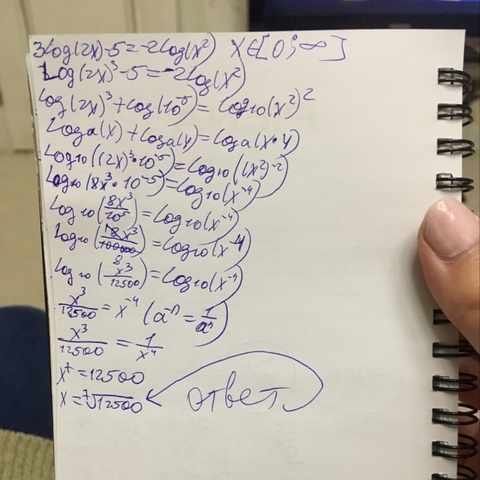 3log(2x)-5=-2log(x²) x∈[0;∞]
Log(2x)³-5=-2log(x²)
log(2x)³+log(10⁻⁵)=log₁₀(x²)²
Loga(x)+Loga(y)=Loga(x·y)
Log₁₀((2x)³·10⁻⁵)=Log₁₀((x²)⁻²)
Log₁₀(8x³·10⁻⁵)=log₁₀(x⁻⁴)
Log₁₀(8x³/10⁵)=log₁₀(x⁻⁴)
Log₁₀(8x³/100000)=log₁₀(x⁻⁴)
Log₁₀(x³/12500)=log₁₀(x⁻⁴)
x³/12500=x⁻⁴ (a⁻ⁿ=1/aⁿ)
x³/12500=1/x⁴
x⁷=12500
x=⁷√12500 ответ